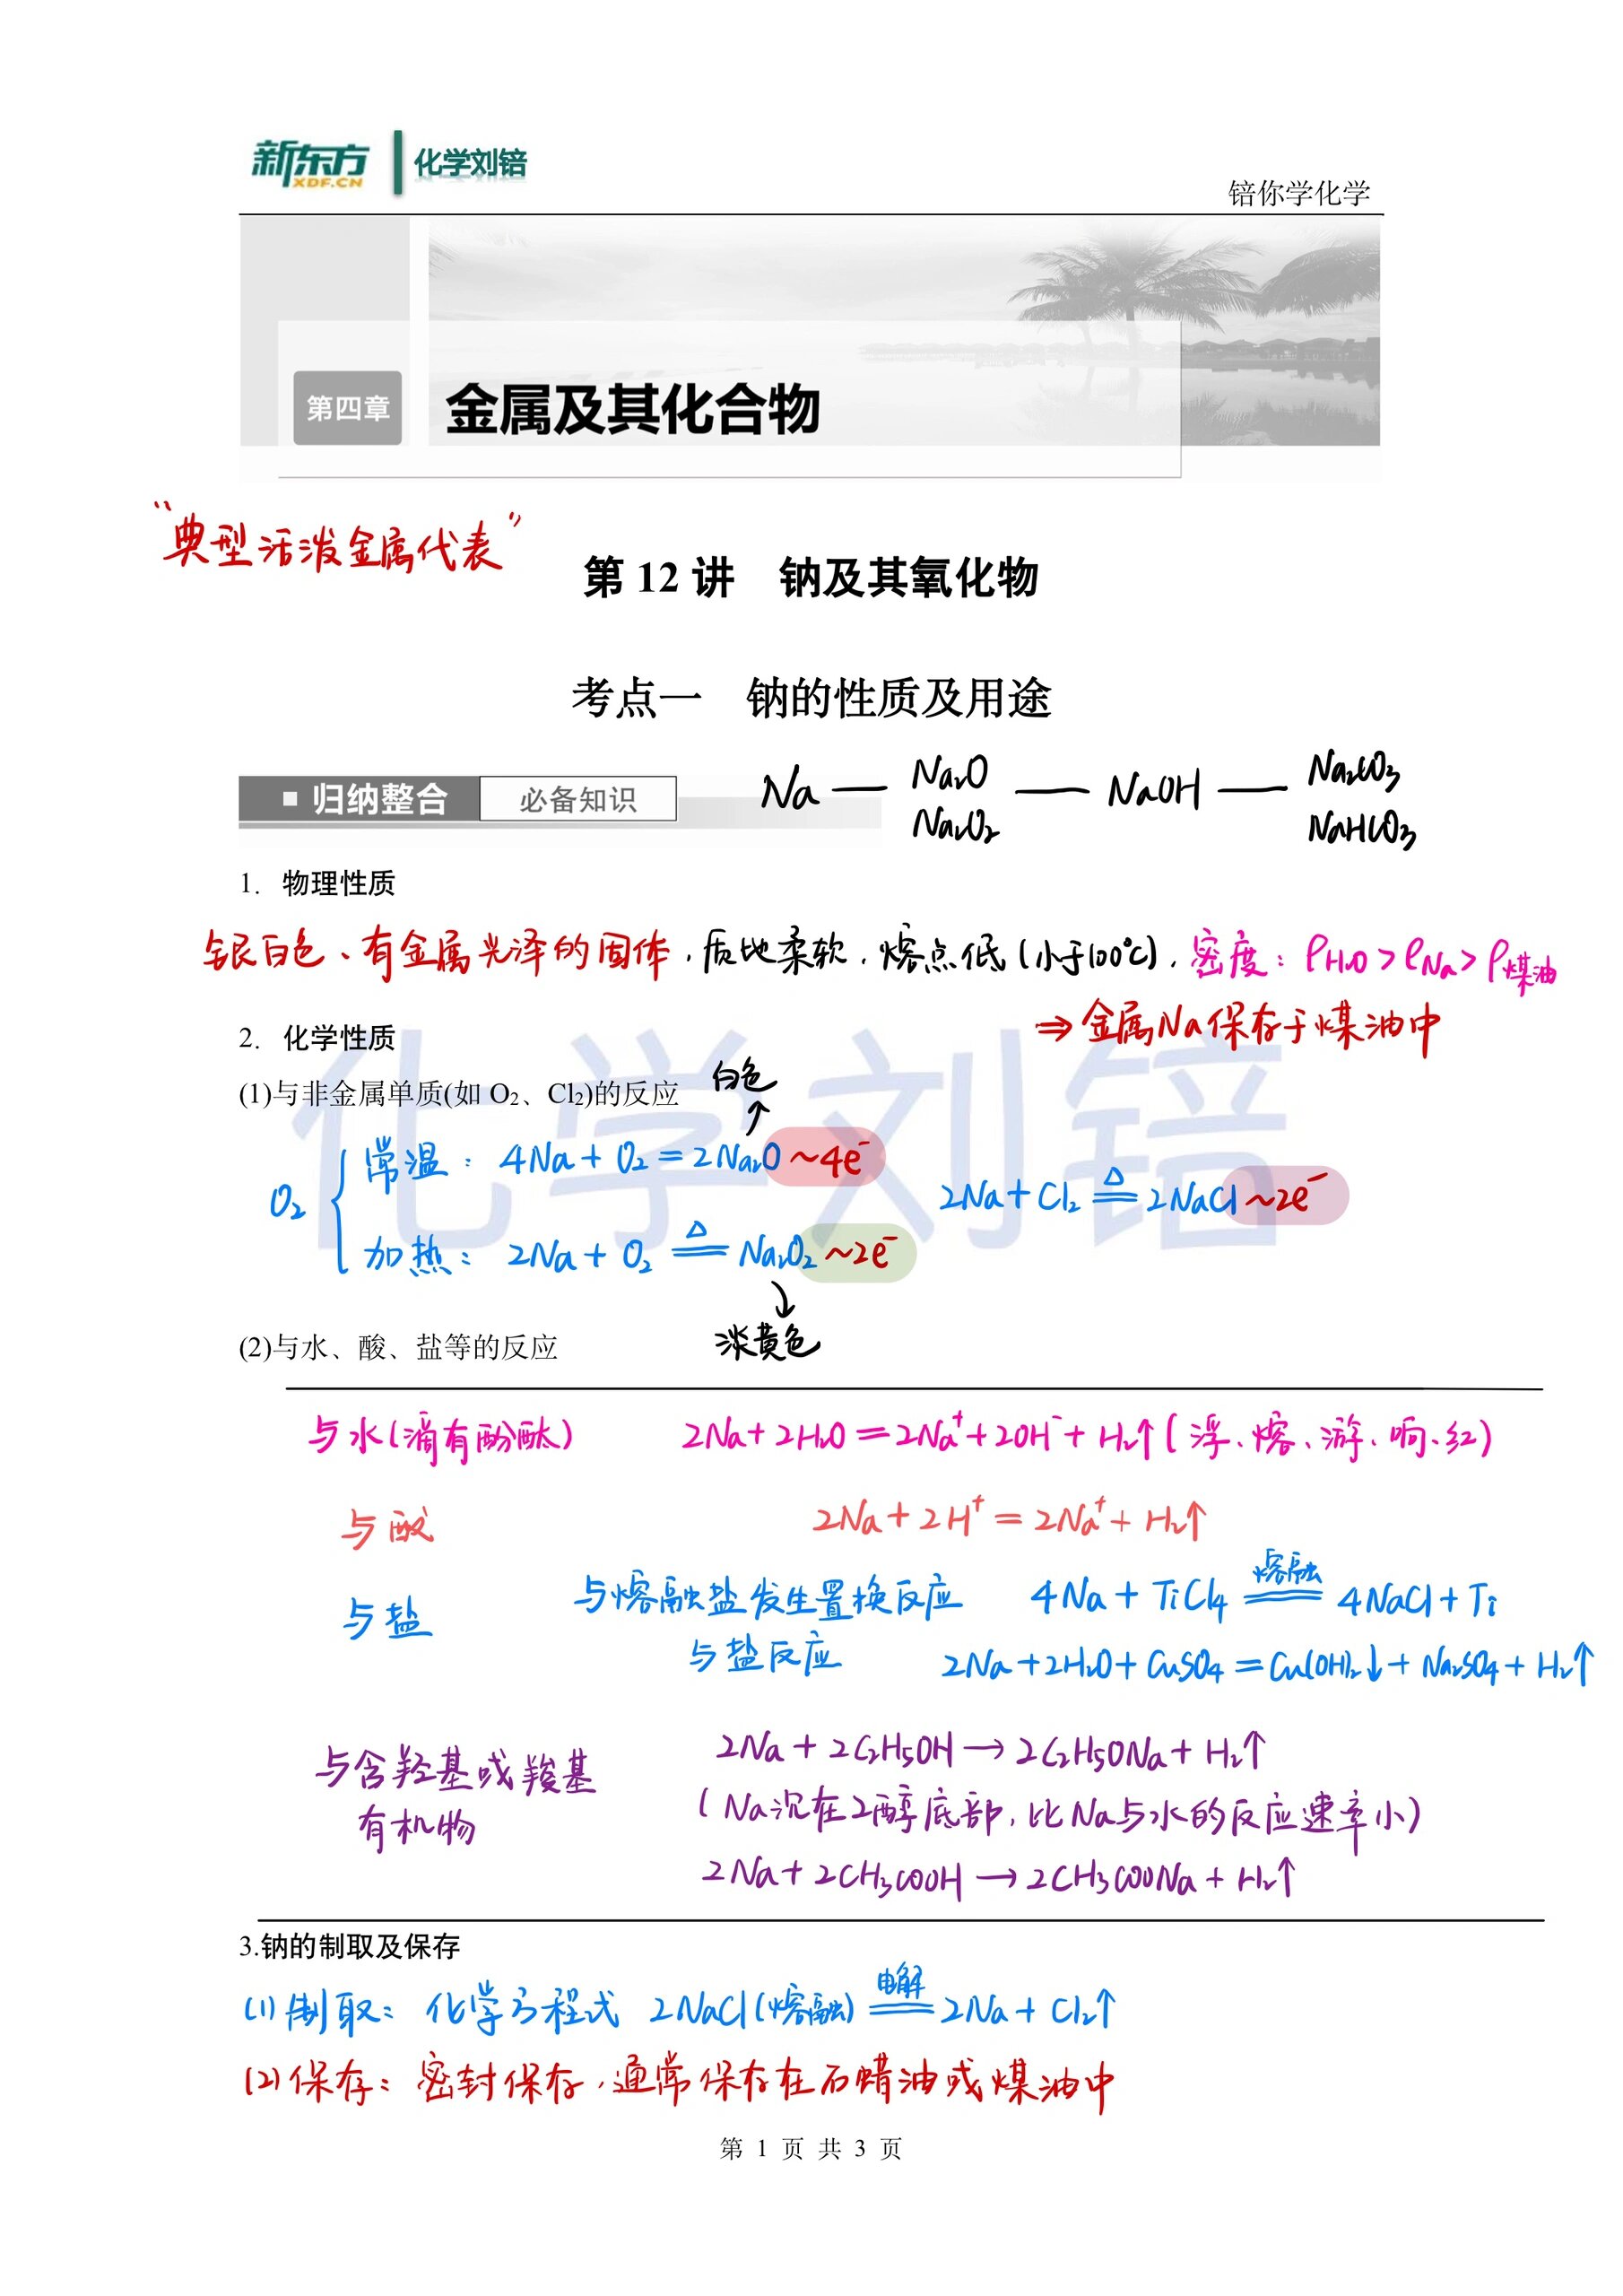 新东方 XDF.CN 化学刘锫
锫你学化学
第四章 金属及其化合物
“典型活泼金属代表”
第 12 讲 钠及其氧化物
考点一 钠的性质及用途
归纳整合 必备知识
Na — Na₂O Na₂O₂ — NaOH — Na₂CO₃ NaHCO₃
1. 物理性质
银白色、有金属光泽的固体，质地柔软，熔点低(小于100℃)，密度：ρH₂O > ρNa > ρ煤油
⇒ 金属Na保存于煤油中
2. 化学性质
(1)与非金属单质(如 O₂、Cl₂)的反应
白色
↑
O₂ { 常温：4Na + O₂ = 2Na₂O ~4e⁻
2Na + Cl₂ ≜ 2NaCl ~2e⁻
加热：2Na + O₂ ≜ Na₂O₂ ~2e⁻
↓
淡黄色
(2)与水、酸、盐等的反应
与水(滴有酚酞) 2Na + 2H₂O = 2Na⁺ + 2OH⁻ + H₂↑ (浮、熔、游、响、红)
与酸 2Na + 2H⁺ = 2Na⁺ + H₂↑
熔融
与盐 与熔融盐发生置换反应 4Na + TiCl₄ == 4NaCl + Ti
与盐反应 2Na + 2H₂O + CuSO₄ = Cu(OH)₂↓ + Na₂SO₄ + H₂↑
与含羟基或羧基
有机物
2Na + 2C₂H₅OH → 2C₂H₅ONa + H₂↑
(Na沉在乙醇底部，比Na与水的反应速率小)
2Na + 2CH₃COOH → 2CH₃COONa + H₂↑
3.钠的制取及保存
电解
(1)制取：化学方程式 2NaCl(熔融) == 2Na + Cl₂↑
(2)保存：密封保存，通常保存在石蜡油或煤油中
第 1 页 共 3 页
化学刘锫